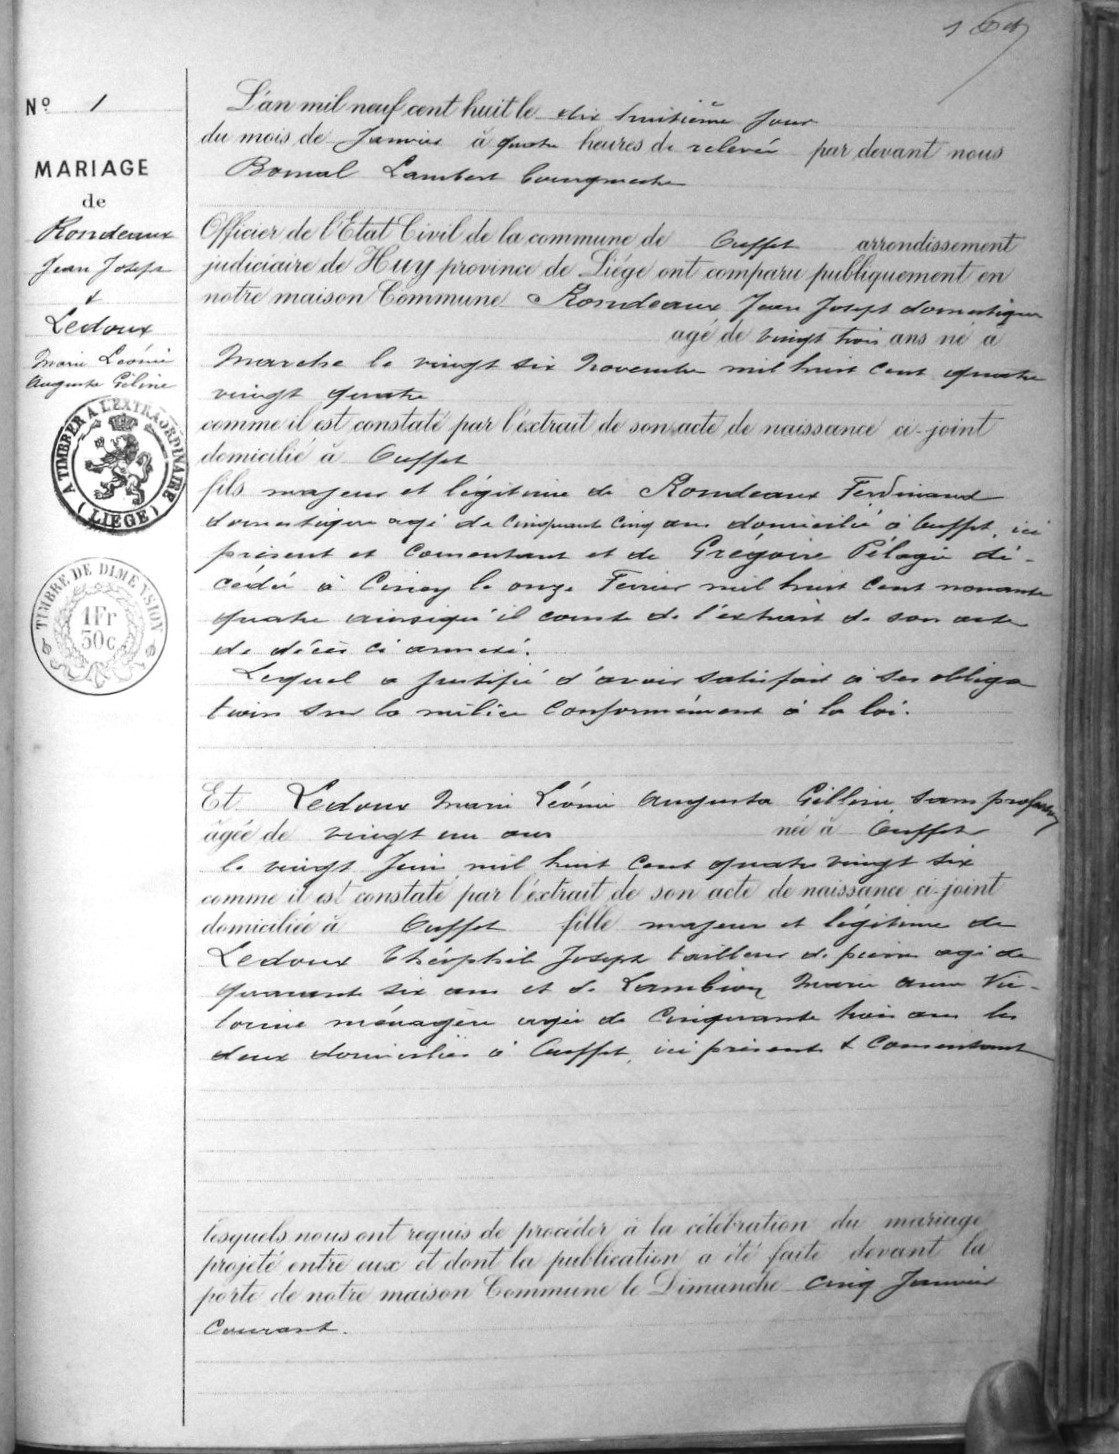 Nº 1
MARIAGE
de
Rondeaux
Jean Joseph
&
Ledoux
Marie Léonie
Augusta Géline
A TIMBRER A L'EXTRAORDINAIRE
(LIEGE)
TIMBRE DE DIMENSION
1Fr
50c
L'an mil neuf cent huit le dix huitième jour
du mois de Janvier à quatre heures de relevée par devant nous
Bomal Lambert bourgmestre
Officier de l'Etat Civil de la commune de Ouffet arrondissement
judiciaire de Huy province de Liége ont comparu publiquement en
notre maison Commune Rondeaux Jean Joseph domestique
agé de vingt trois ans né à
Marche le vingt six Novembre mil huit cent quatre
vingt quatre
comme il est constaté par l'éxtrait de son acte de naissance ci-joint
domicilié à Ouffet
fils majeur et légitime de Rondeaux Ferdinand
domestique agé de cinquante cinq ans domicilié à Ouffet, ici
présent et consentant et de Grégoire Pélagie dé-
cédée à Ciney le onze Fevrier mil huit cent nonante
quatre ainsi qu'il conste de l'extrait de son acte
de décès ci annexé.
Lequel a justifié d'avoir satisfait à ses obliga
tions sur la milice conformément à la loi.
Et Ledoux Marie Léonie Augusta Gilline, sans profession
âgée de vingt un ans née à Ouffet
le vingt Juin mil huit cent quatre vingt six
comme il est constaté par l'éxtrait de son acte de naissance ci-joint
domiciliée à Ouffet fille majeure et légitime de
Ledoux Théophile Joseph tailleur de pierre agé de
quarante six ans et de Lambion Marie Anne Vic-
torine ménagère agée de cinquante trois ans les
deux domiciliés à Ouffet, ici présents & consentant
lesquels nous ont requis de procéder à la célébration du mariage
projeté entre eux et dont la publication a été faite devant la
porte de notre maison Commune le Dimanche cinq Janvier
courant.